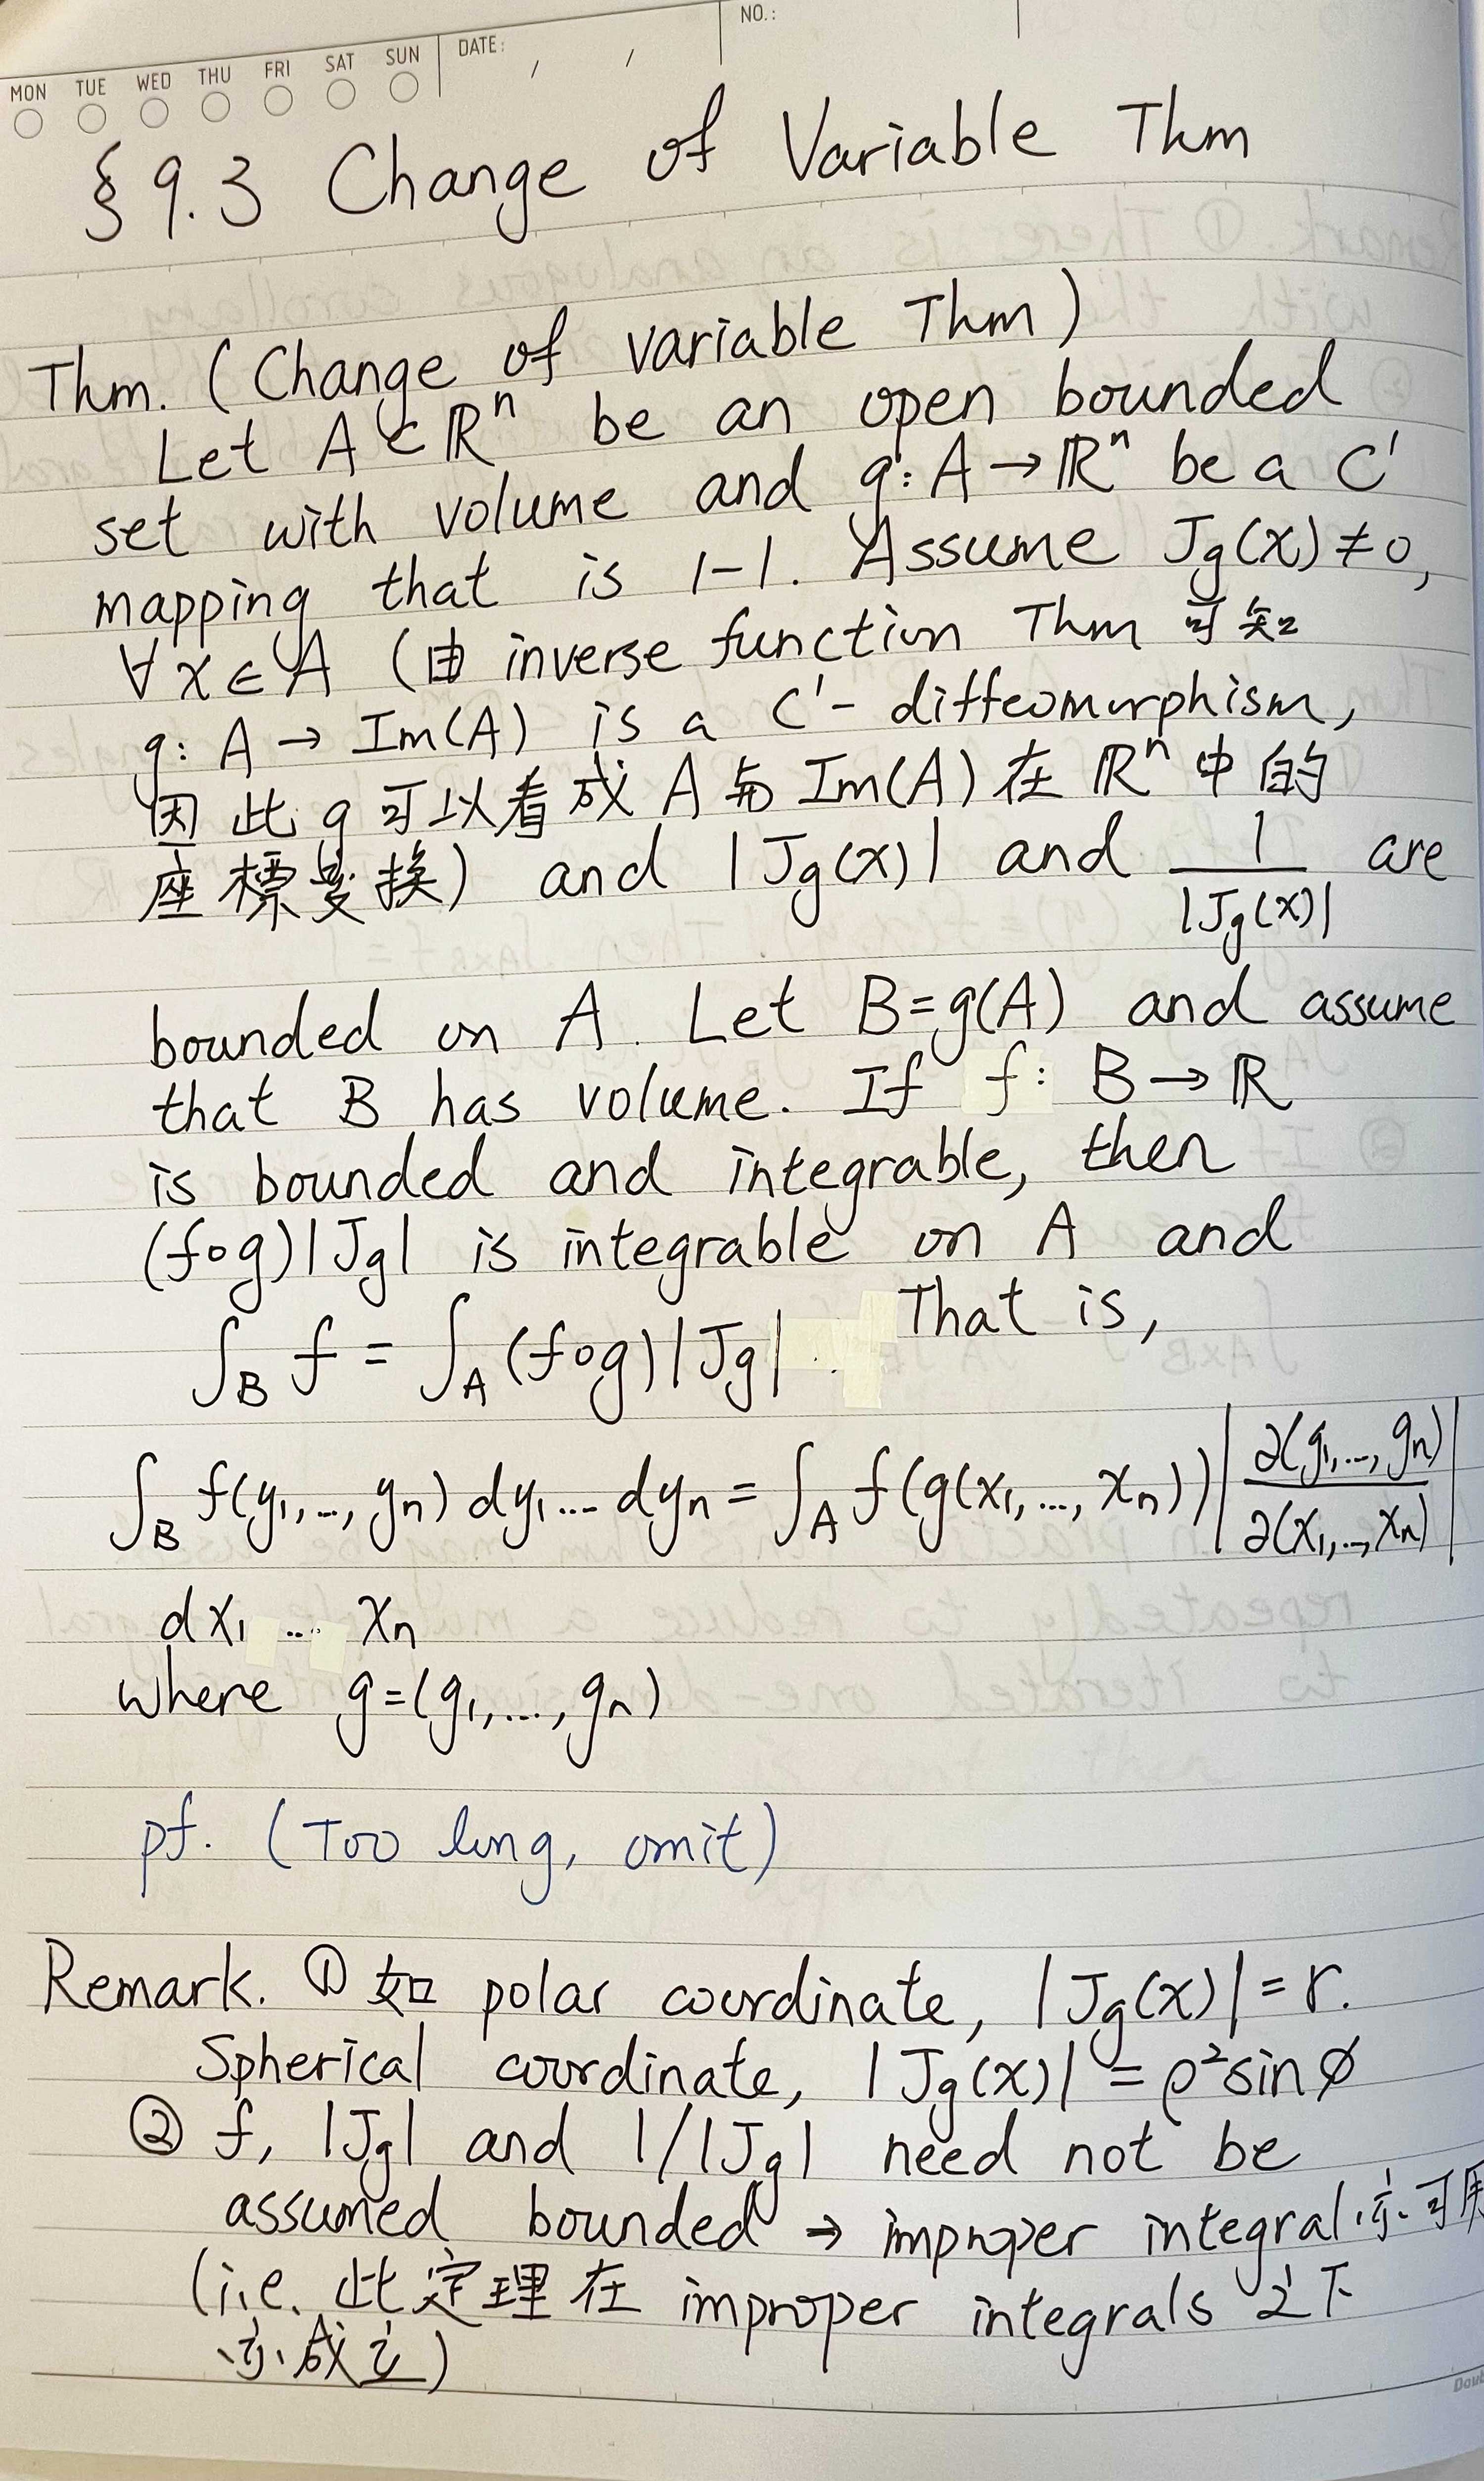 MON TUE WED THU FRI SAT SUN DATE: / / NO.:
§9.3 Change of Variable Thm
Thm. (Change of variable Thm)
Let A⊂ℝⁿ be an open bounded
set with volume and g: A→ℝⁿ be a C¹
mapping that is 1-1. Assume Jg(x)≠0,
∀x∈A (由 inverse function Thm 可知
g: A→Im(A) is a C¹-diffeomorphism,
因此 g 可以看成 A 与 Im(A) 在 ℝⁿ 中的
座標变换) and |Jg(x)| and 1/|Jg(x)| are
bounded on A. Let B=g(A) and assume
that B has volume. If f: B→ℝ
is bounded and integrable, then
(f∘g)|Jg| is integrable on A and
∫_B f = ∫_A (f∘g)|Jg|. That is,
∫_B f(y₁,...,yₙ) dy₁...dyₙ = ∫_A f(g(x₁,...,xₙ)) |∂(g₁,...,gₙ)/∂(x₁,...,xₙ)|
dx₁ ... xₙ
where g=(g₁,...,gₙ)
pf. (Too long, omit)
Remark. ① 如 polar coordinate, |Jg(x)|=r.
Spherical coordinate, |Jg(x)|=ρ²sinφ
② f, |Jg| and 1/|Jg| need not be
assumed bounded → improper integral 亦可用
(i.e. 此定理在 improper integrals 之下
亦成立)